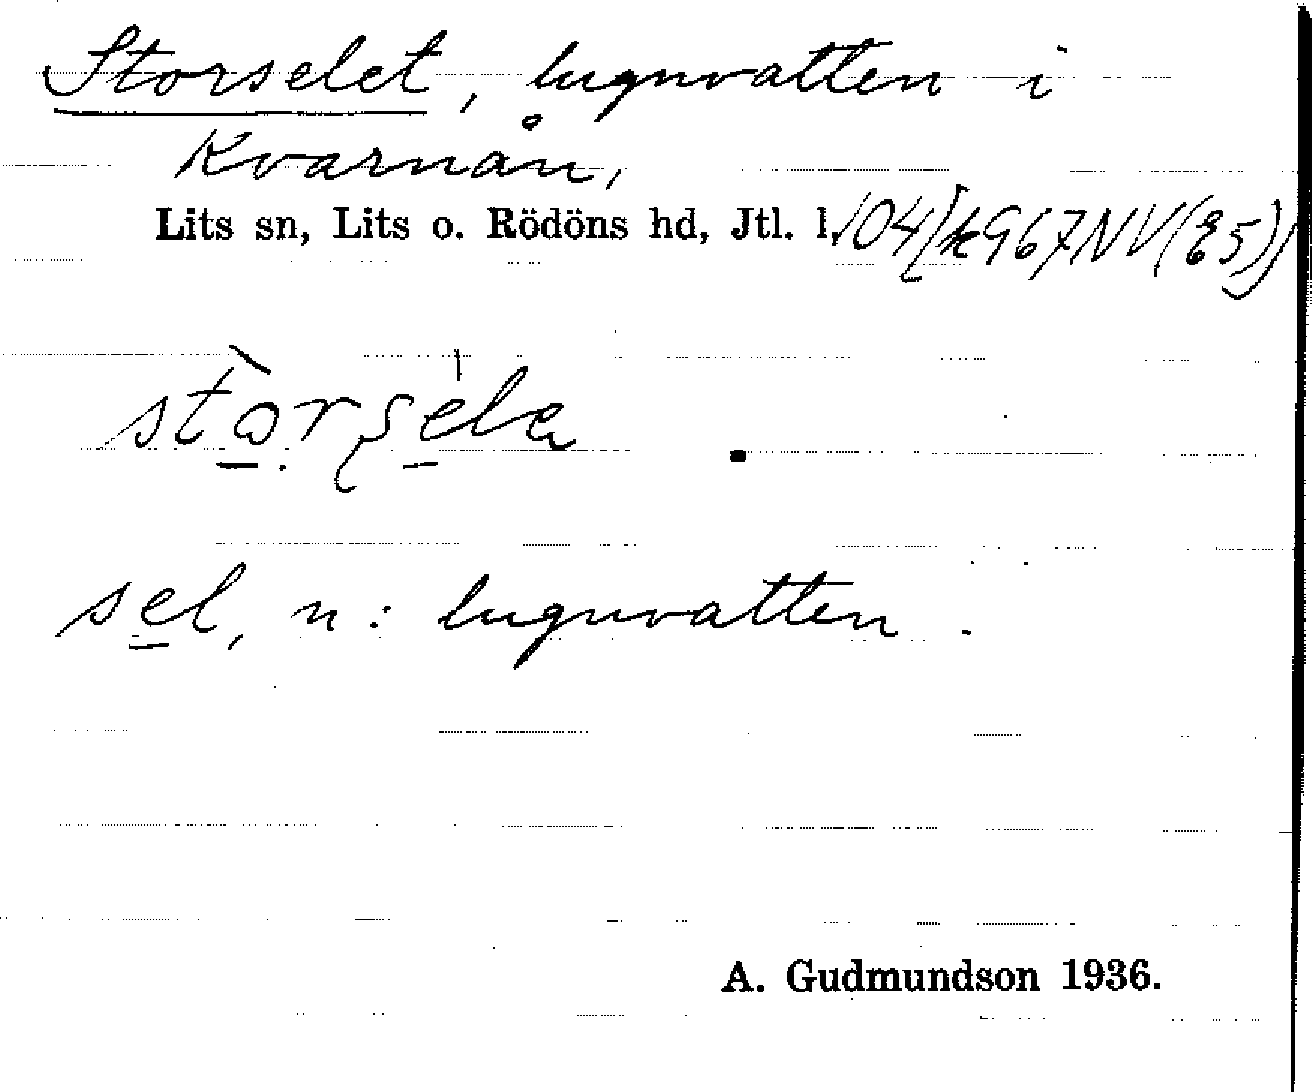 Storselet, lugnvatten i
Kvarnån,
Lits sn, Lits o. Rödöns hd, Jtl. l.
sel, n: lugnvatten.
A. Gudmundson 1936.